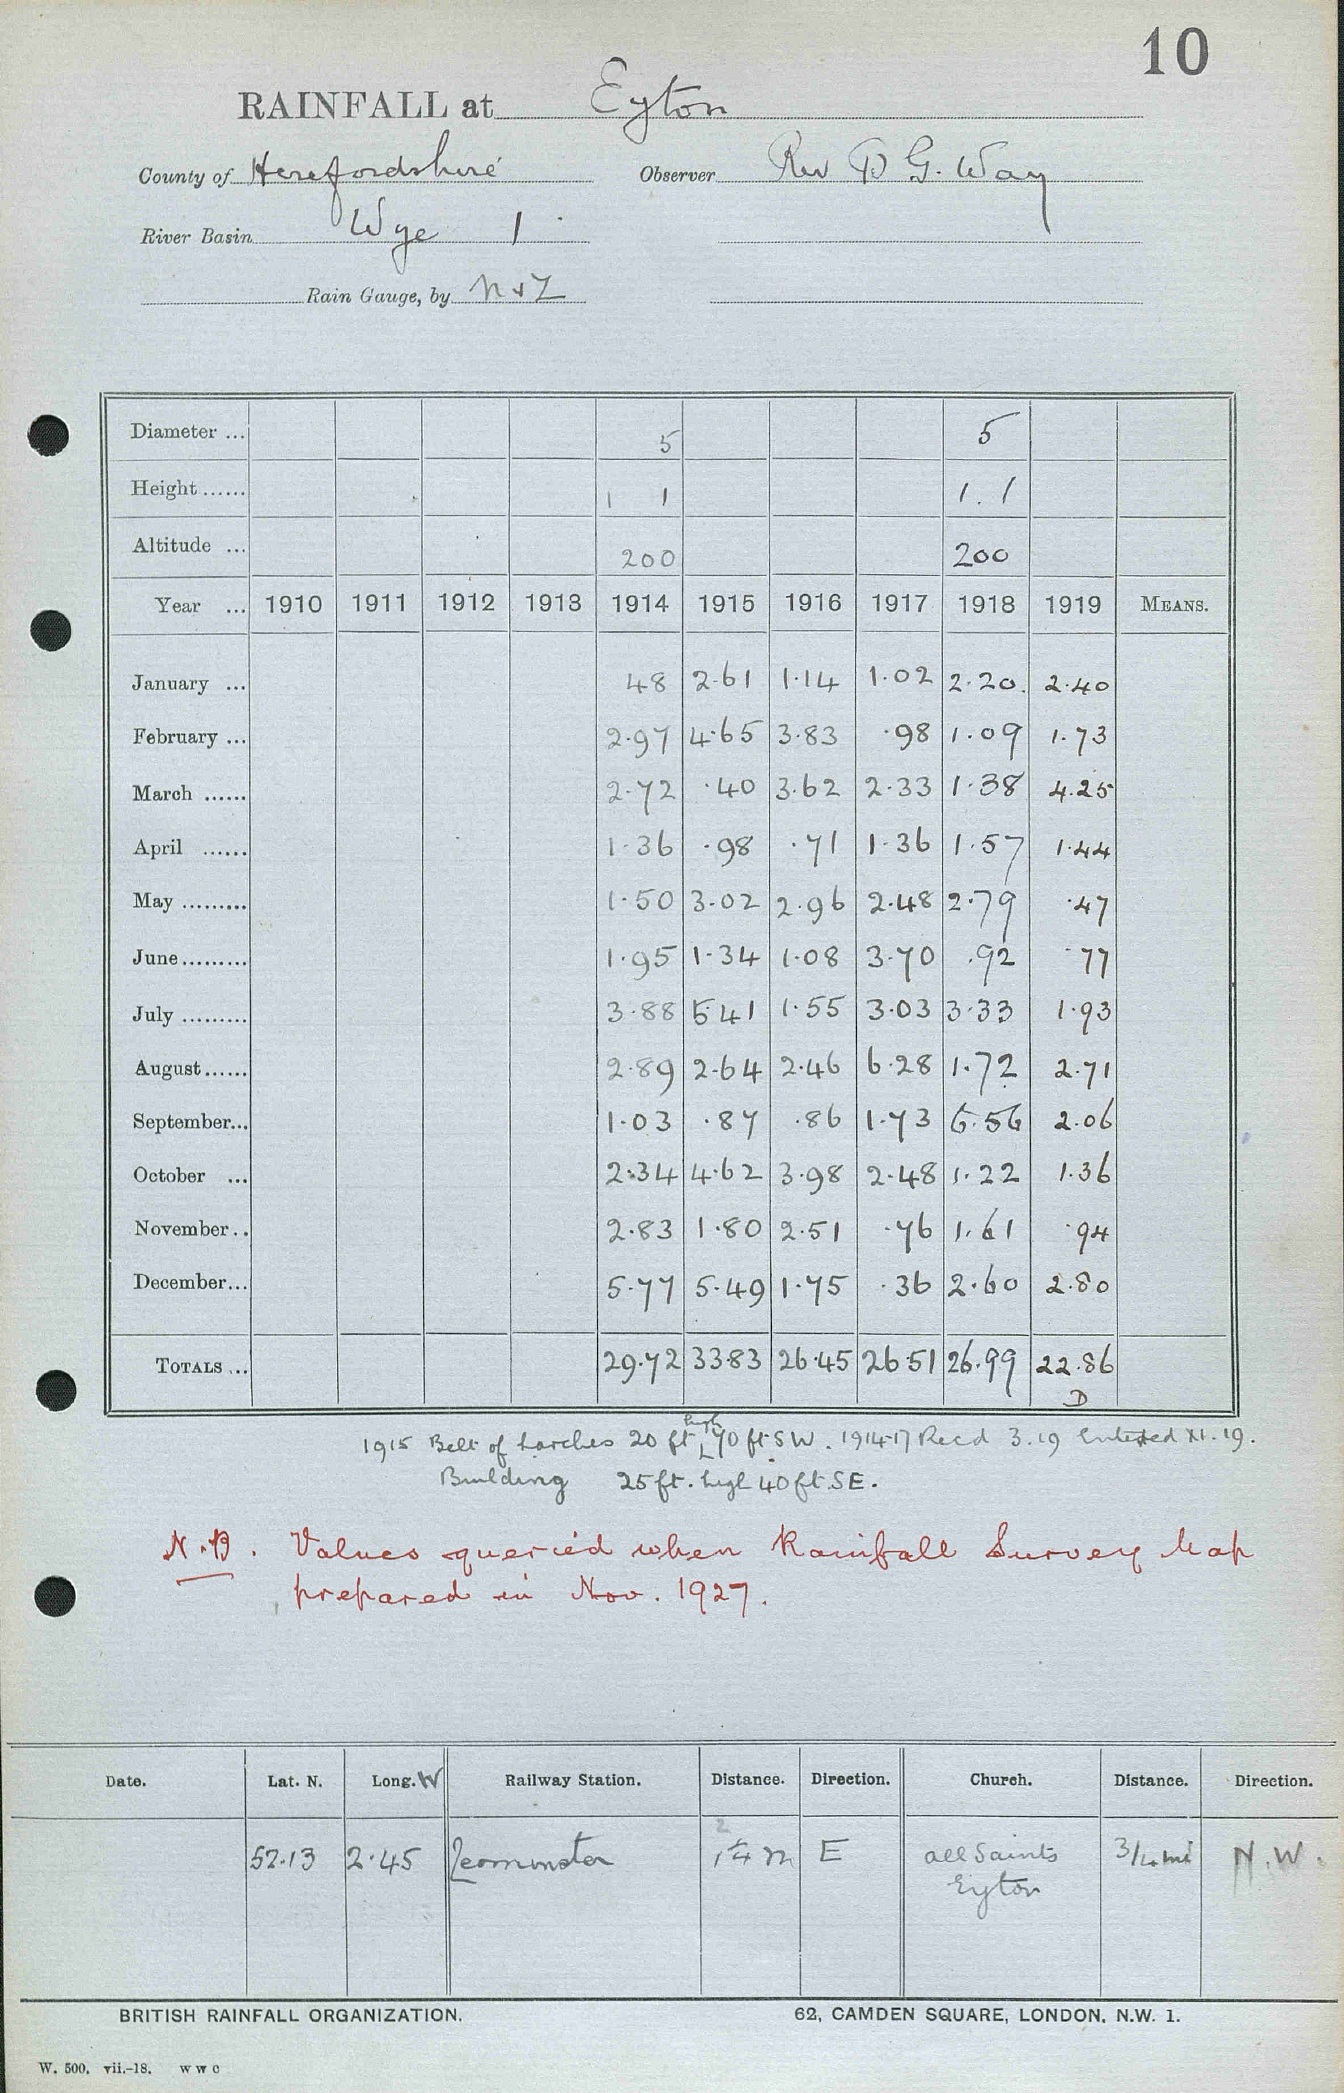 10
RAINFALL at Eyton
County of Herefordshire Observer Rev D G. Way
River Basin Wye 1
Rain Gauge, by N+Z
Diameter ... 5 5
Height ...... 1 1 1.1
Altitude ... 200 200
Year ... 1910 1911 1912 1913 1914 1915 1916 1917 1918 1919 MEANS.
January ... 48 2.61 1.14 1.02 2.20 2.40
February ... 2.97 4.65 3.83 .98 1.09 1.73
March ...... 2.72 .40 3.62 2.33 1.38 4.25
April ...... 1.36 .98 .71 1.36 1.57 1.44
May ......... 1.50 3.02 2.96 2.48 2.79 .47
June......... 1.95 1.34 1.08 3.70 .92 .77
July ......... 3.88 5.41 1.55 3.03 3.33 1.93
August...... 2.89 2.64 2.46 6.28 1.72 2.71
September... 1.03 .87 .86 1.73 6.56 2.06
October ... 2.34 4.62 3.98 2.48 1.22 1.36
November.. 2.83 1.80 2.51 .76 1.61 .94
December... 5.77 5.49 1.75 .36 2.60 2.80
TOTALS ... 29.72 33.83 26.45 26.51 26.99 22.86
D
1915 Belt of Larches 20 ft high 70 ft SW. 1914-17 Recd 3.19 Entered XI.19.
Building 25 ft. high 40 ft. SE.
N.B. Values queried when Rainfall Survey Map
prepared in Nov. 1927.
Date. Lat. N. Long. W Railway Station. Distance. Direction. Church. Distance. Direction.
52.13 2.45 Leominster E All Saints 3/4 mi N.W.
Eyton
BRITISH RAINFALL ORGANIZATION. 62, CAMDEN SQUARE, LONDON, N.W. 1.
W. 500. vii.-18. W W C